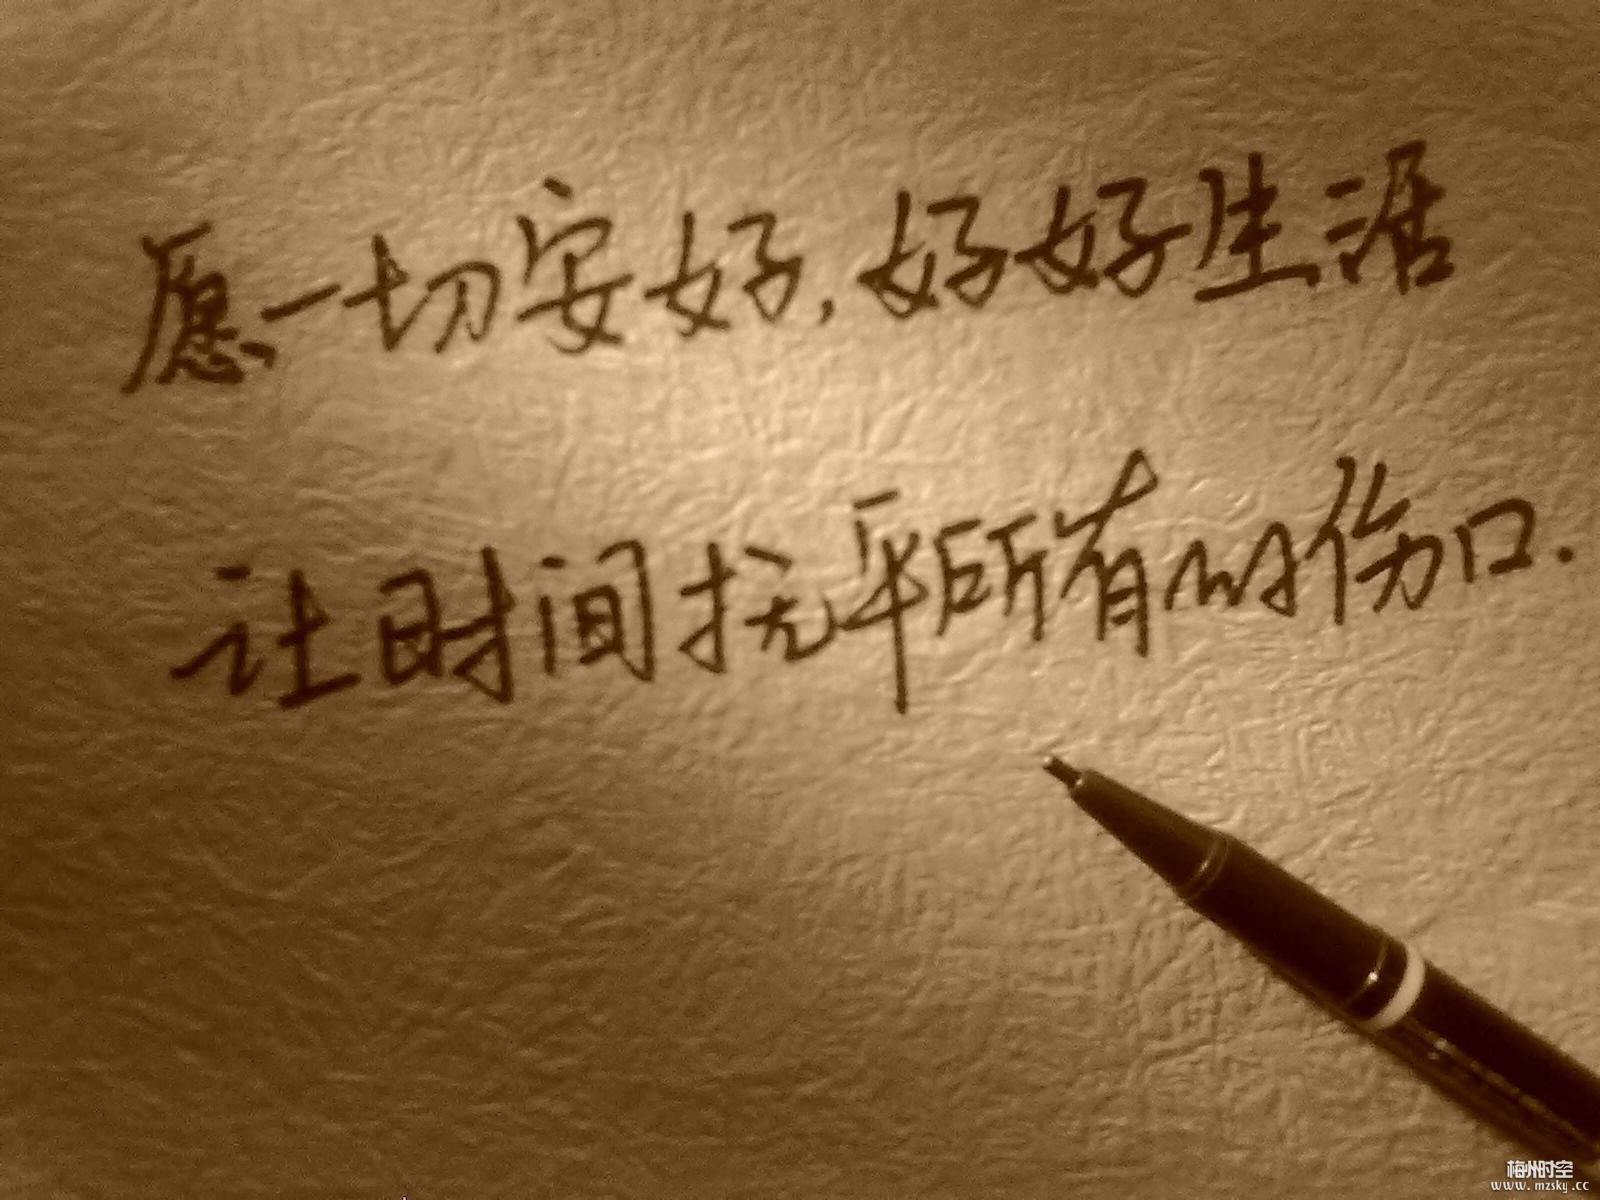 愿一切安好,好好生活
让时间抚平所有的伤口.
梅州时空
www.mzsky.cc